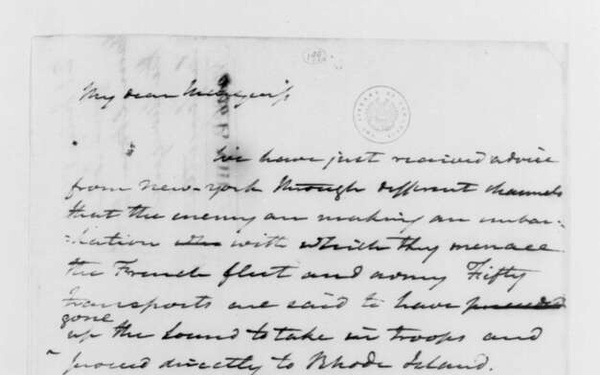 My dear Marquis
We have just received advice
from New York through different channels
that the enemy are making an embar-
-kation with which they menace
the French fleet and army Fifty
transports are said to have
gone
up the Sound to take in troops and
proceed directly to Rhode Island.